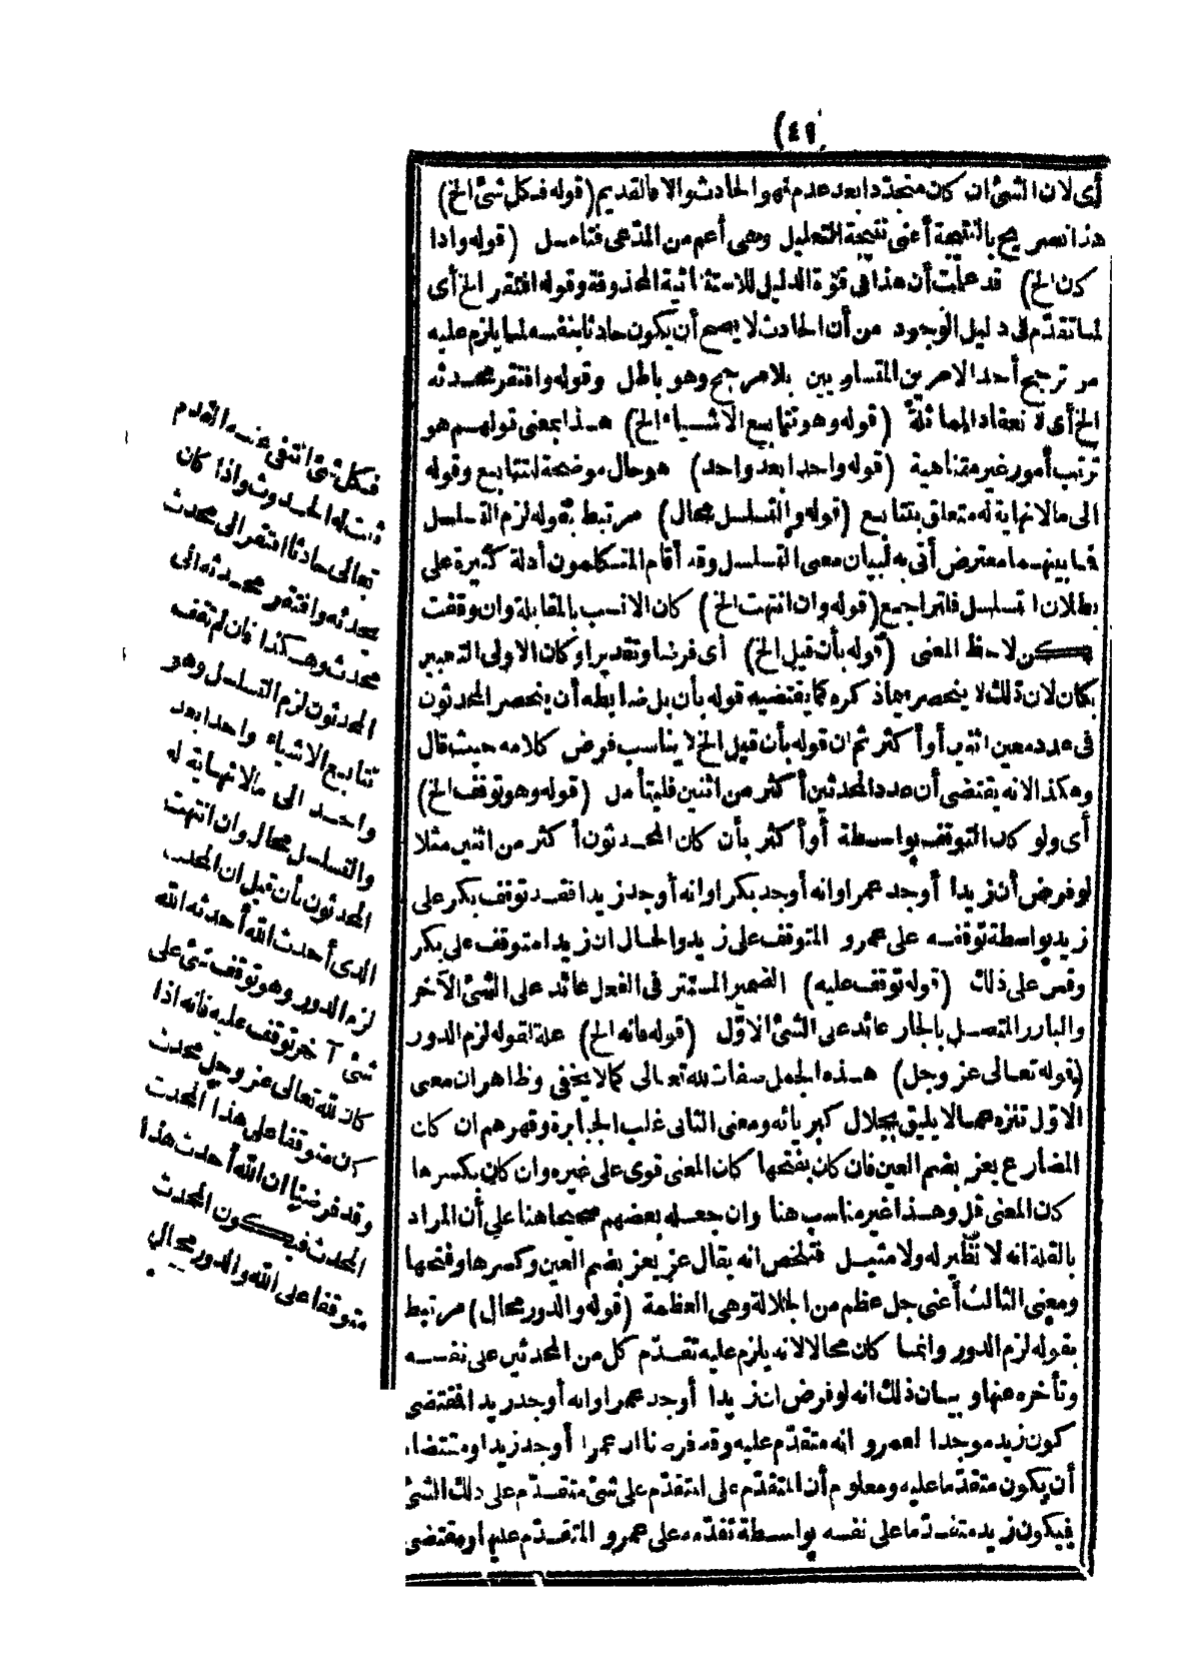 (٤٩)
أى لان الشئ ان كان متجدّدا بعد عدم فهو الحادث والا فالقديم (قوله فكل شئ الخ)
هذا تصريح بالنتيجة أعنى نتيجة التعليل وهى أعم من المدّعى فتامل (قوله واذا
كان الخ) قد علمت أن هذا فى قوّة الدليل للاستثنائية المحذوفة وقوله افتقر الخ أى
لما تقدّم فى دليل الوجود من أن الحادث لا يصح أن يكون حادثا بنفسه لما يلزم عليه
من ترجيح أحد الامرين المتساويين بلا مرجح وهو باطل وقوله وافتقر محدثه
الخ أى لانعقاد المماثلة (قوله وهو تتابع الاشياء الخ) هذا بمعنى قولهم هو
ترتب أمور غير متناهية (قوله واحدا بعد واحد) هو حال موضحة لتتابع وقوله
الى مالا نهاية له متعلق بتتابع (قوله والتسلسل محال) مرتبط بقوله لزم التسلسل
فما بينهما معترض أتى به لبيان معنى التسلسل وقد أقام المتكلمون أدلة كثيرة على
بطلان التسلسل فلتراجع (قوله وان انتهت الخ) كان الانسب بالمقابلة وان وقفت
لكن لاحظ المعنى (قوله بأن قيل الخ) أى فرضا وتقديرا وكان الاولى التعبير
بكان لان ذلك لا ينحصر فيما ذكره كما يقتضيه قوله بأن بل ضابطه أن ينحصر المحدثون
فى عدد معين اثنين أو أكثر ثم ان قوله بأن قيل الخ لا يناسب فرض كلامه حيث قال
وهكذا لانه يقتضى أن عدد المحدثين أكثر من اثنين فليتأمل (قوله وهو توقف الخ)
أى ولو كان التوقف بواسطة أو أكثر بأن كان المحدثون أكثر من اثنين مثلا
لو فرض أن زيدا أوجد عمرا وانه أوجد بكرا وانه أوجد زيدا فقد توقف بكر على
زيد بواسطة توقفه على عمرو المتوقف على زيد والحال ان زيدا متوقف على بكر
وقس على ذلك (قوله توقف عليه) الضمير المستتر فى الفعل عائد على الشئ الآخر
والبارز المتصل بالجار عائد على الشئ الاوّل (قوله فانه الخ) علة لقوله لزم الدور
(قوله تعالى عز وجل) هذه الجمل صفات لله تعالى كما لا يخفى وظاهر ان معنى
الاوّل تنزه عما لا يليق بجلال كبريائه ومعنى الثانى غلب الجبابرة وقهرهم ان كان
المضارع يعز بضم العين فان كان بفتحها كان المعنى قوى على غيره وان كان بكسرها
كان المعنى قل وهذا غير مناسب هنا وان جعله بعضهم صحيحا هنا على أن المراد
بالقلة انه لا نظير له ولا مثيل فتلخص انه يقال عز يعز بضم العين وكسرها وفتحها
ومعنى الثالث أعنى جل عظم من الجلالة وهى العظمة (قوله والدور محال) مرتبط
بقوله لزم الدور وانما كان محالا لانه يلزم عليه تقدّم كل من المحدثين على نفسه
وتأخره عنها وبيان ذلك انه لو فرض ان زيدا أوجد عمرا وانه أوجد زيدا فمقتضى
كون زيد موجدا لعمرو انه متقدّم عليه وقد فرضنا ان عمرا أوجد زيدا ومقتضاه
أن يكون متقدّما عليه ومعلوم أن المتقدّم على المتقدّم على شئ متقدّم على ذلك الشئ
فيكون زيد متقدّما على نفسه بواسطة تقدّمه على عمرو المتقدّم عليها ومقتضى
فكل شئ انتفى عنه القدم
ثبت له الحدوث واذا كان
تعالى حادثا افتقر الى محدث
يحدثه وافتقر محدثه الى
محدث وهكذا فان لم تقف
المحدثون لزم التسلسل وهو
تتابع الاشياء واحدا بعد
واحد الى مالا نهاية له
والتسلسل محال وان انتهت
المحدثون بأن قيل ان المحدث
الذى أحدث الله أحدثه الله
لزم الدور وهو توقف شئ على
شئ آخر توقف عليه فانه اذا
كان لله تعالى عز وجل محدث
كان متوقفا على هذا المحدث
وقد فرضنا ان الله أحدث هذا
المحدث فيكون المحدث
متوقفا على الله والدور محال